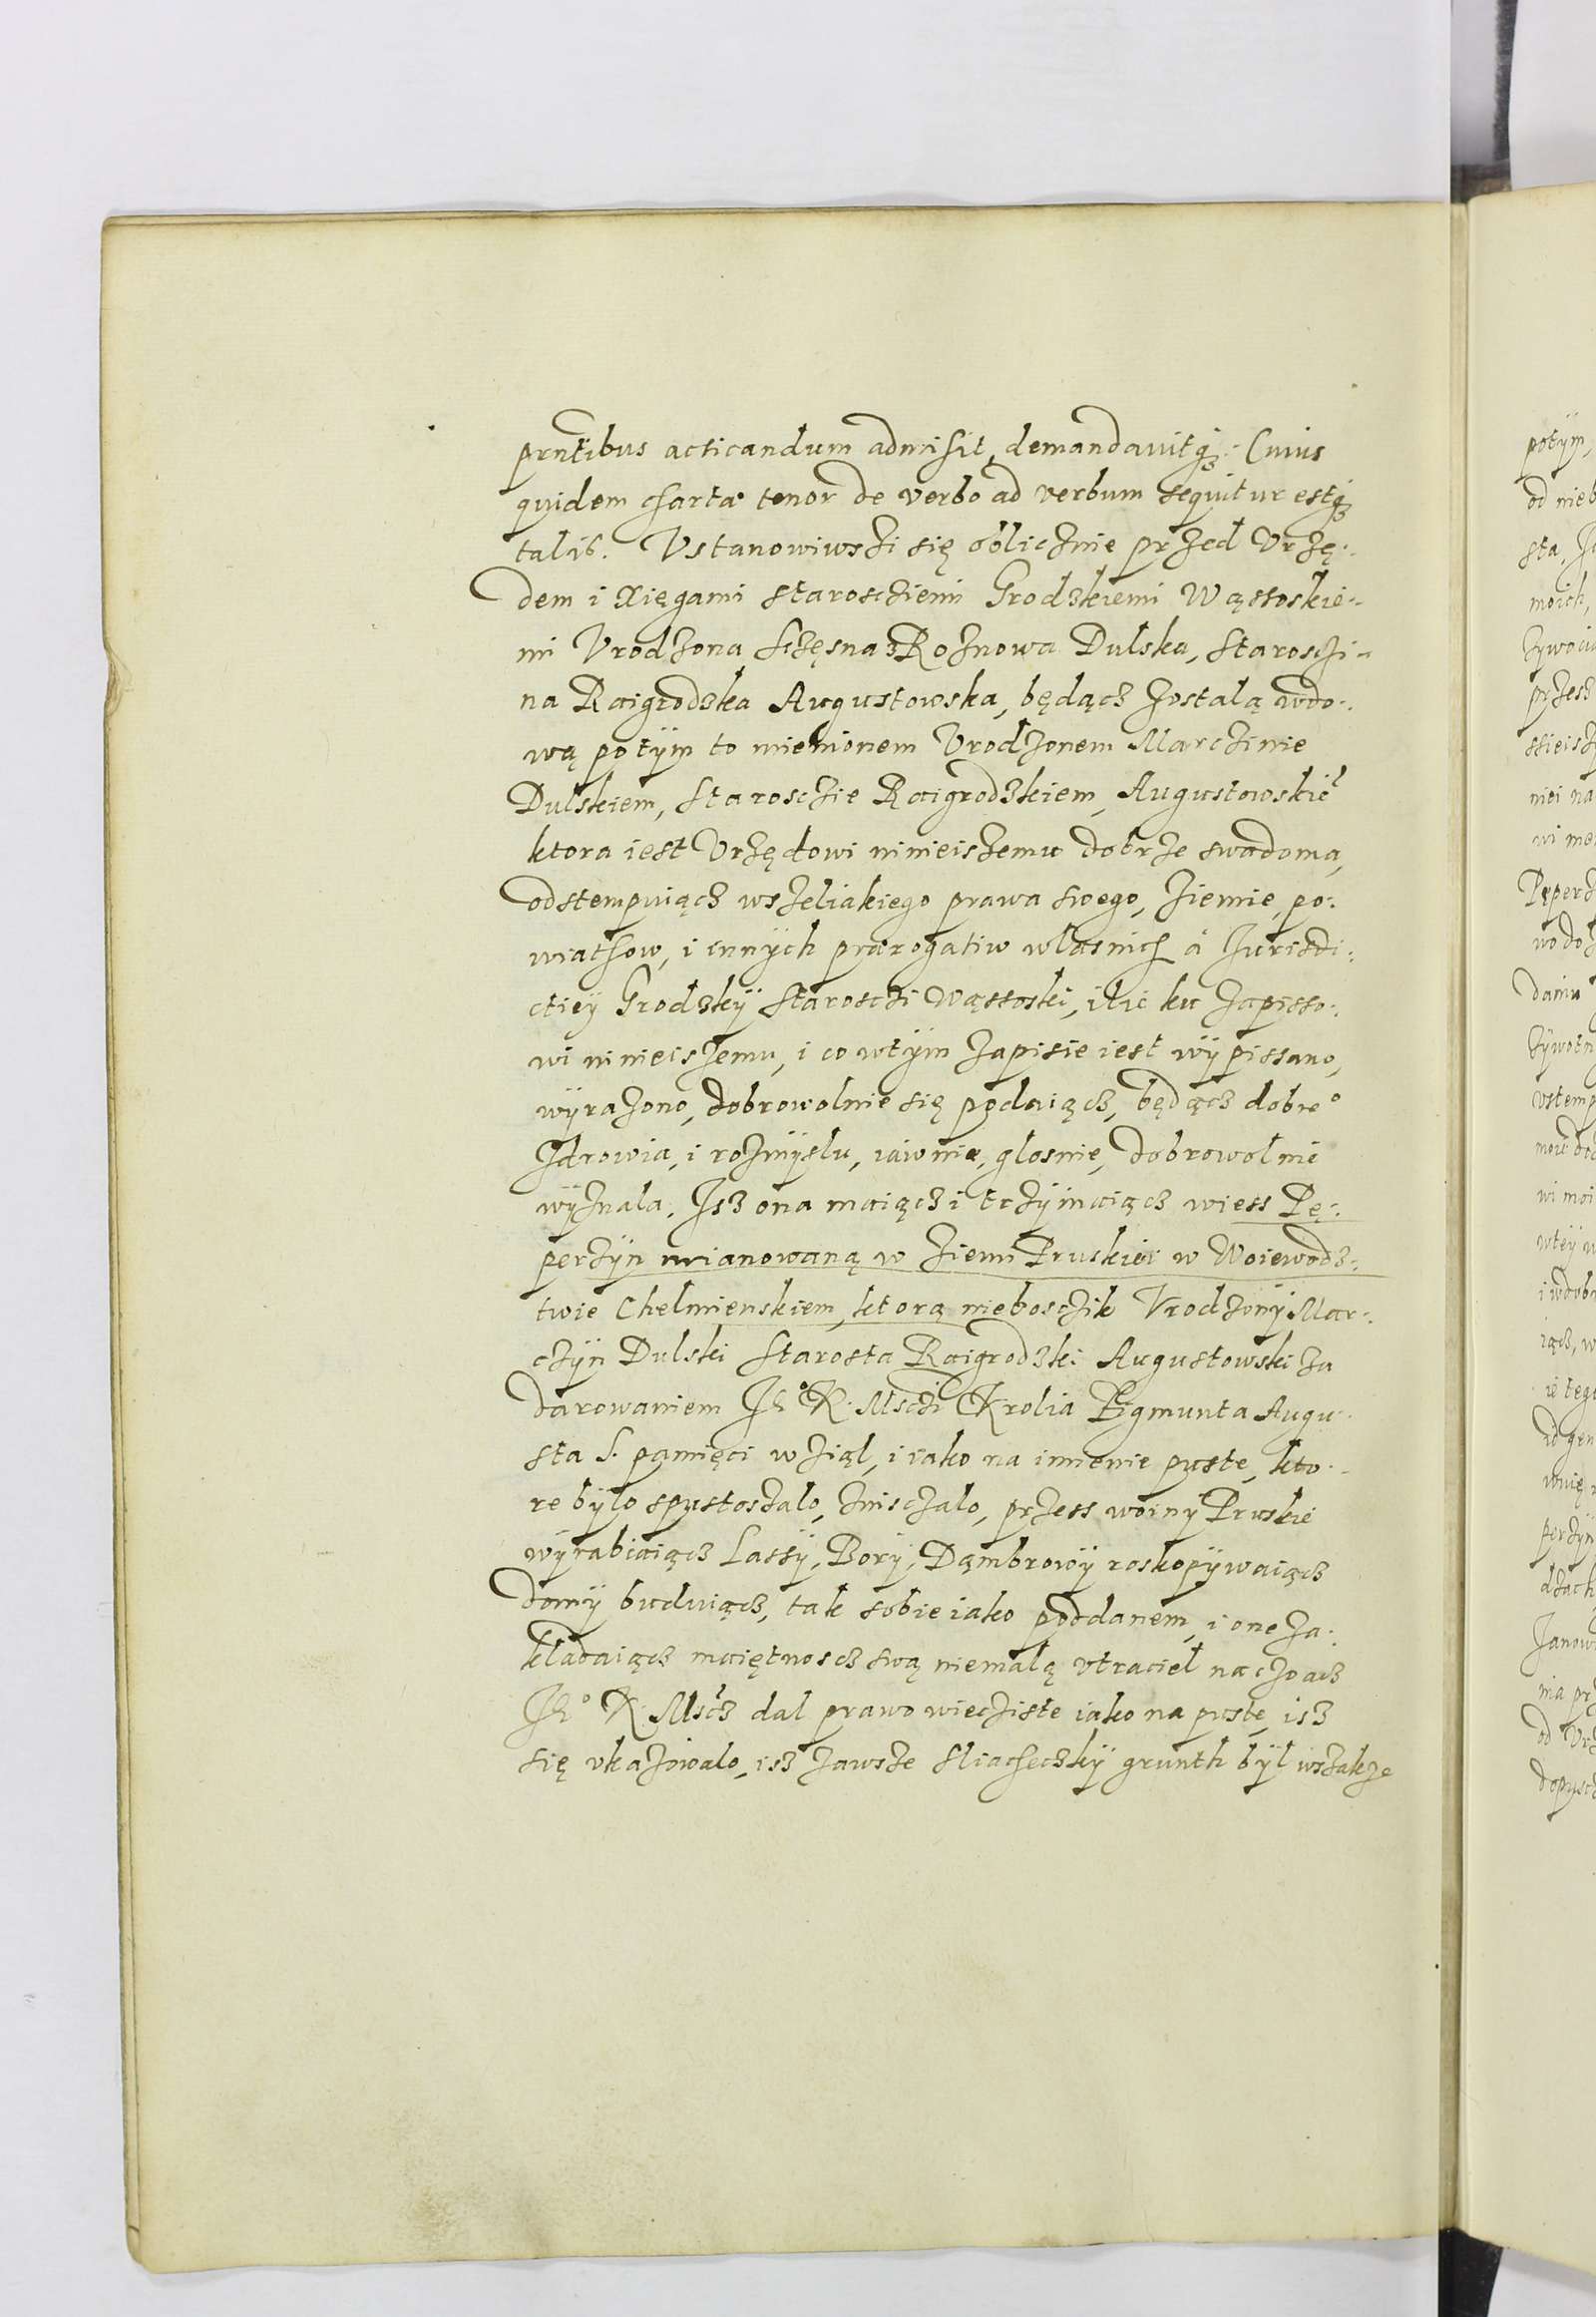 prntibus acticandum admisit, demandavitq3. Cuius
quidem charta tenor de verbo ad verbum sequitur estq3
talis. Vstanowiwszi się oblicznie przed Vrzę..
dem i xięgami staroscziemi Grodzkiemi Wąssoskie..
mi Vrodzona Sczęsna z Roznowa Dulska, staroszi..
na Raigrodzka Augustowska, będącz zostalą wdo..
wą potÿm to mienionem Vrodzonem Marczinie
Dulskiem, staroszczie Raigrodzkiem, Augustowskiē
ktora iest Vrzędowi ninieiszemu dobrze swadoma,
odstempuiącz wszeliakiego prawa swego, ziemie, po:
wiathow, i innÿch prarogatiw wlasnich á Iurisdi:
ctieÿ Grodzkÿ staroschi Wąssoski, ilie ku zapisso:
wi ninieiszemu, i co wtÿm zapisie iest wÿpissano,
wÿrazono, dobrowolnie się podaiącz, będącz dobre°
zdrowia, i rozmÿslu, iawnie, glosnie, dobrowolnie
wÿznala. Isz ona maiącz i trzÿmaiącz wiess Pę:
perzÿn mianowaną w ziemi Pruskiei w Woiewodz:
twie Chelmienskiem, ktorą nieboszczik Vrodzonÿ Mar:
czÿn Dulski Starosta Raigrodzki Augustowski za
darowaniem Ih° K. Msczi Krolia Zigmunta Augu
sta S. pamięci wziąl, i iako na imienie puste, kto..
re bÿlo spustoszalo, zniszczalo, przess woinÿ Pruskie
wÿrabiaiącz Lassÿ, Borÿ, Dąmbrowÿ roskopÿwaiącz
domÿ buduiącz, tak sobie iako poddanem, i one za:
kladaiącz maiętnoscz swą niemalą vtraciel na czo acz
Ih° K. Mscz dal prawo wiecziste iako na puste, isz
się vkazowalo, isz zawsze sliacheczkÿ grunth bÿl wszakze